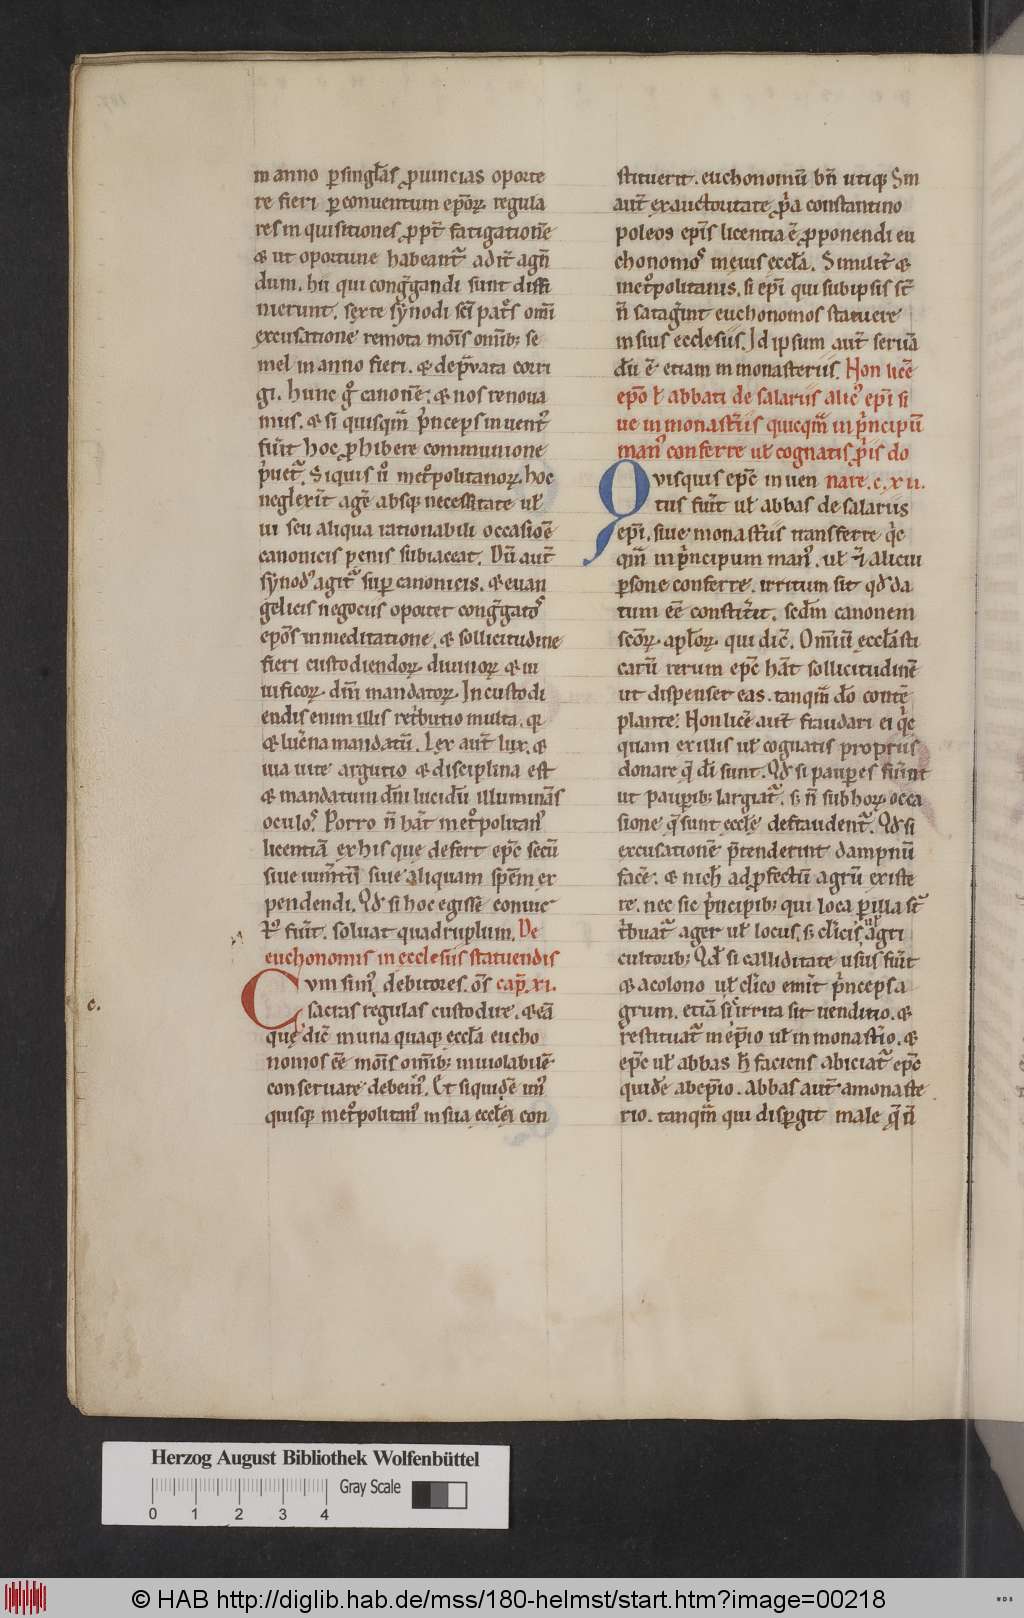 in anno ꝑ singłas ꝓuincias oporte
re fieri ꝑ conuentum epōꝝ regula
res in quisitiones ꝓpt̄ fatigationē
& ut oportune habeant᷑ adit᷑ agn̄
dum. hii qui cong᷑gandi sunt diffi
nierunt. sexte synodi sc̄i pat᷑s om̄i
excusatione remota mo᷑is om̄ib; se
mel in anno fieri. & dep᷑uata corri
gi. hunc g̊ canonē. & nos renoua
mus. & si quisqm̄ p᷑nceps inuent᷒
fu᷑it hoc ꝓhibere communione
p᷑uet᷑. Siquis u᷑ met᷒politanoꝝ hoc
neglex᷑it agē absqꝫ necessitate uł
ui seu aliqua rationabili occasiōe
canonicis penis subiaceat. Dū aut̄
synod᷒ agit᷑ suꝑ canonicis. & euan
gelicis negociis oportet cong᷑gato᷒
epōs in meditatione. & sollicitudine
fieri custodiendoꝝ diuinoꝝ & ui
uificoꝝ dn̄i mandatoꝝ. In custodi
endis enim illis ret᷑butio multa. q᷑
& luc᷑na mandatū. Lex aut̄ lux. &
uia uite argutio & disciplina est
& mandatum dn̄i lucidū illuminās
oculo᷒. Porro n̄ hāt met᷒politan᷒
licentiā ex his que defert epc̄ secū
siue ium̄tū siue aliquam spēm ex
pendendi. Qd̄ si hoc egisse conuic
t᷒ fu᷑it. soluat quadruplum. De
euchonomis in ecclesiis statuendis
Cum sim᷒ debitores. om̄s cap᷑. xi.
sacras regulas custodire. & eā
que dic̄ in una quaqꝫ eccła eucho
nomos eē mo᷑is om̄ib; inuiolabilē
conseruare debem᷒. Et siquidē un᷒
quisqꝫ met᷒politan᷒ in sua ecclēi con
c.
stituerit. euchonomū bn̄ utiqꝫ Sin
aut̄ ex auctoritate p᷑a constantino
poleos epīs licentia ē ꝓponendi eu
chonomo᷒ in eius eccła. Similit᷑ &
met᷒politanis. si epī qui sub ipsis st̄
n̄ satag᷑int euchonomos statuere
in suis ecclesiis. Id ipsum aut̄ seruā
dū ē etiam in monasteriis. Non licē
epō ł abbati de salariis alic᷒ epī si
ue in monast᷑iis quicqm̄ in p᷑ncipū
man᷒ conferre uł cognatis p᷑is do
Qvisquis epc̄ inuen nare. c. xii.
tus fu᷑it uł abbas de salariis
epī. siue monast᷑iis transferre q᷑c
qm̄ in p᷑ncipum man᷒. uł & alicui
ꝑsone conferre. irritum sit qd̄ da
tum eē constit᷑it. secdm canonem
scōꝝ apłoꝝ qui dic̄. Om̄iū ecclāsti
carū rerum epc̄ hāt sollicitudinē
ut dispenset eas. tanqm̄ dō contē
plante. Non licē aut̄ fraudari ei q᷑c
quam ex illis uł cognatis propriis
donare q̄ di sunt. Qd̄ si pauꝑes fu᷑int
ut pauꝑib; largiat᷑. s; n̄ sub hoꝝ occa
sione q̄ sunt ecclē defraudent᷑. Qd̄ si
excusationē p̄tenderint dampnū
facē. & nich᷑ ad ꝓfectū agrū existe
re. nec sic p᷑ncipib; qui loca ꝑ illa st᷑
t᷑buat᷑ ager uł locus. s; cłicis uł agri
cultorib; Qd̄ si calliditate usus fu᷑it
& a colono uł cłico em᷑it p᷑nceps a
grum. etiā si irrita sit uenditio. &
restituat᷑ in ep̄io uł in monast᷑io. &
epc̄ uł abbas h̄ faciens abiciat᷑ epc̄
quidē ab ep̄io. abbas aut̄ a monaste
rio. tanqm̄ qui disꝑgit male q̄ n̄
Herzog August Bibliothek Wolfenbüttel
Gray Scale
0 1 2 3 4
© HAB http://diglib.hab.de/mss/180-helmst/start.htm?image=00218